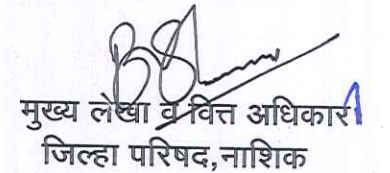 मुख्य लेखा व वित्त अधिकारी
जिल्हा परिषद,नाशिक